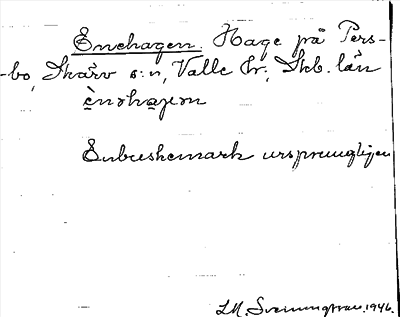 Enehagen. Hage på Pers-
-bo, Skärv s:n, Valle hr., Skb. län
ènəhàgen
Enbuskemark ursprungligen
1946.